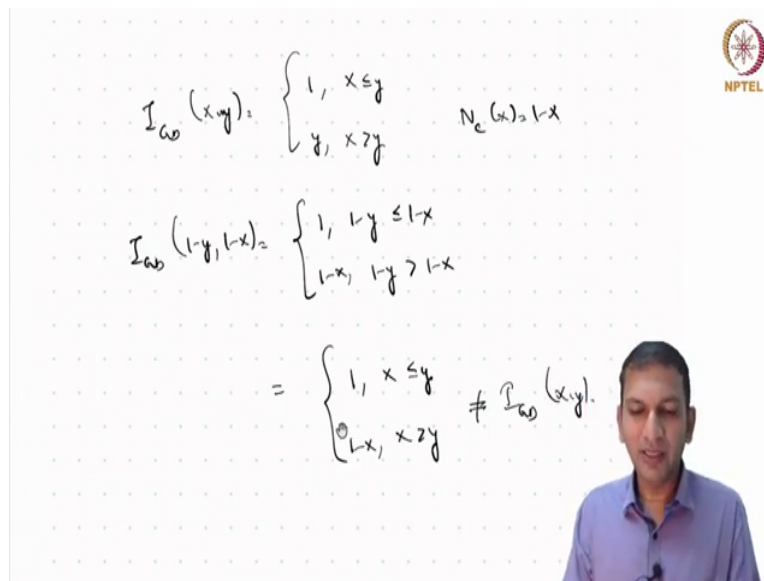 I_GD (x,y) = { 1, x ≤ y
y, x > y
N_C (x) = 1-x
I_GD (1-y, 1-x) = { 1, 1-y ≤ 1-x
1-x, 1-y > 1-x
= { 1, x ≤ y
1-x, x > y
≠ I_GD (x,y).
NPTEL